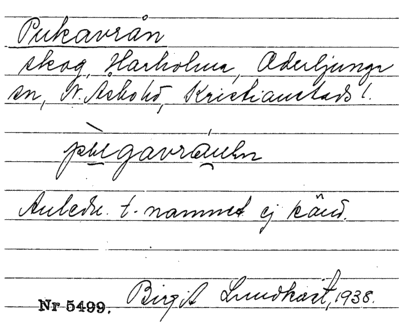 Pukavrån
skog, Harholma, Oderljunga
sn, N. Åsbohd, Kristianstads l.
pùgavráuen
Anledn. t. namnet ej känd.
Nr 5499. Birgit Lundkvist, 1938.